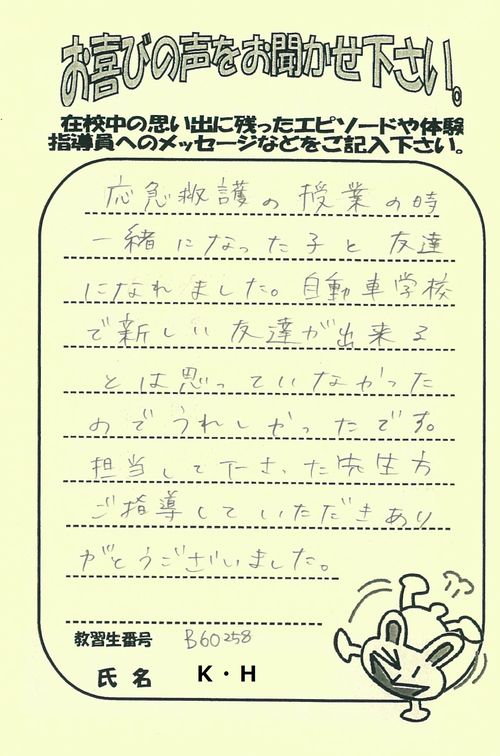 お喜びの声をお聞かせ下さい。
在校中の思い出に残ったエピソードや体験
指導員へのメッセージなどをご記入下さい。
応急救護の授業の時
一緒になった子と友達
になれました。自動車学校
で新しい友達が出来る
とは思っていなかった
のでうれしかったです。
担当して下さった先生方
ご指導していただきあり
がとうございました。
教習生番号 B60258
氏名 K・H